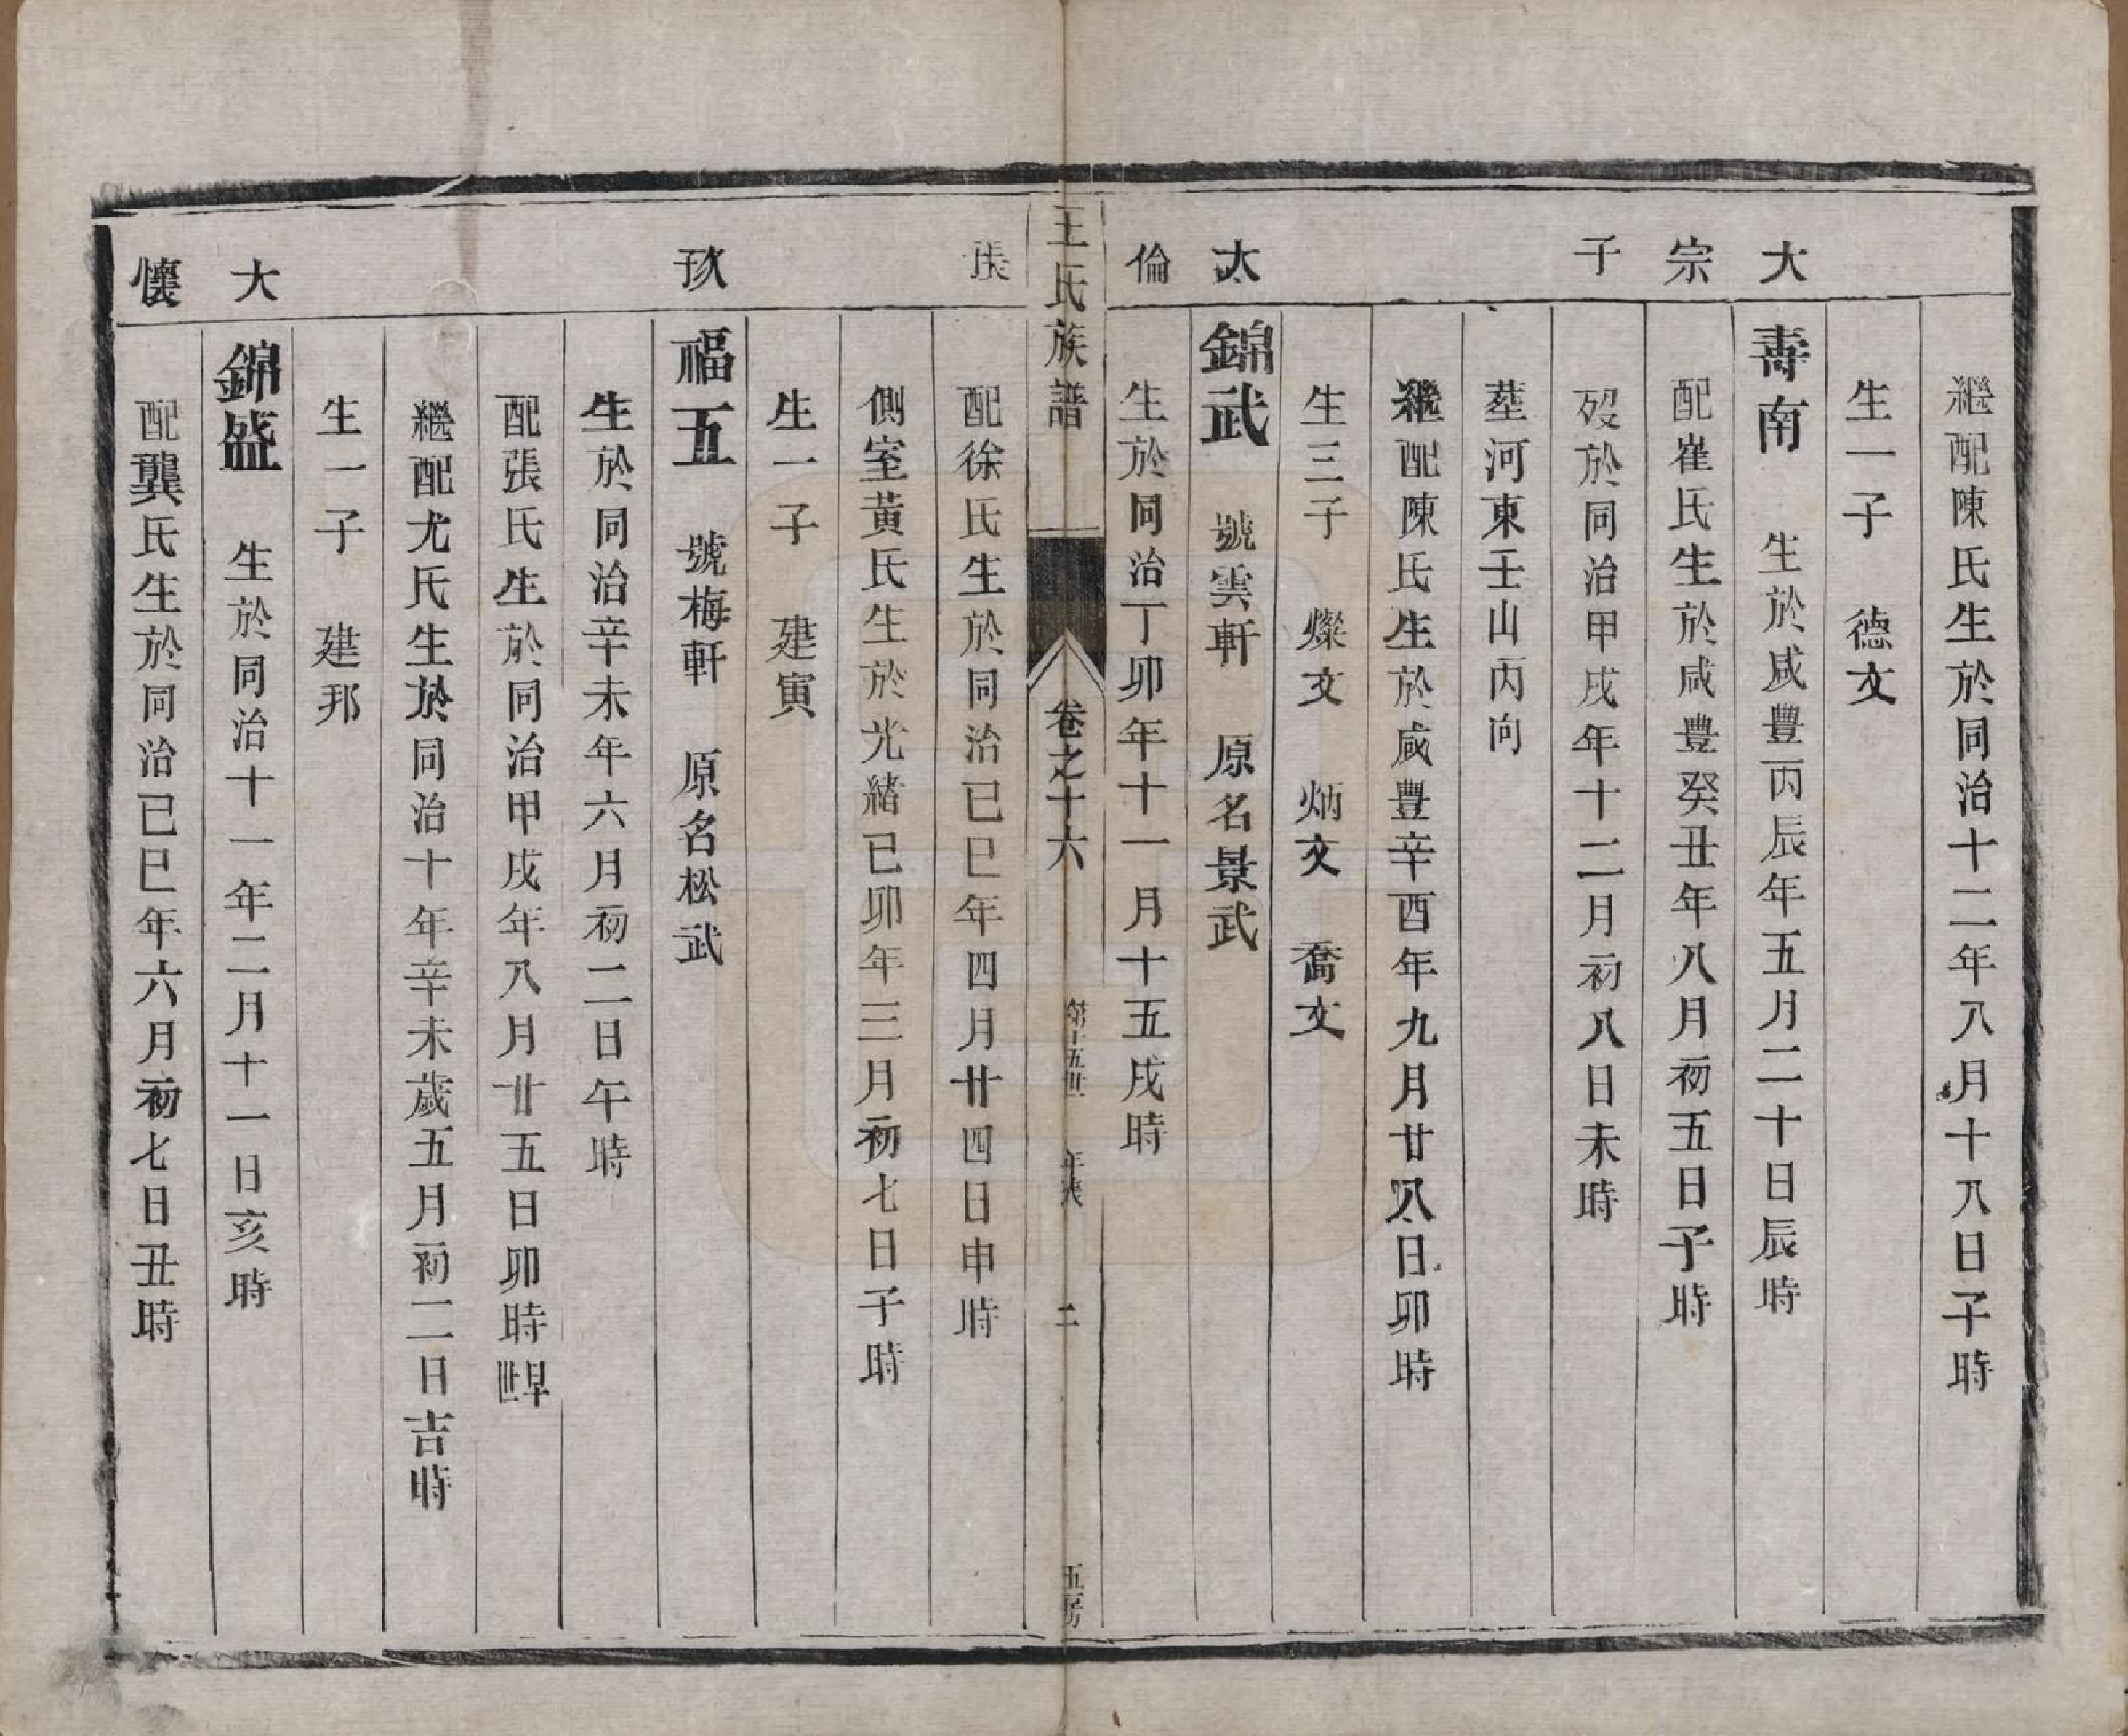 繼配陳氏生於同治十二年八月十八日子時
生一子　德文
大
壽南　生於咸豐丙辰年五月二十日辰時
宗
配崔氏生於咸豐癸丑年八月初五日子時
子
歿於同治甲戌年十二月初八日未時
葬河東壬山丙向
繼配陳氏生於咸豐辛酉年九月廿八日卯時
生三子　燦文　炳文　喬文
太
錦武　號雲軒　原名景武
倫
生於同治丁卯年十一月十五戌時
王氏族譜　卷之十六　第十五世　二　五房
長
配徐氏生於同治已巳年四月廿四日申時
側室黃氏生於光緒已卯年三月初七日子時
生一子　建寅
福五　號梅軒　原名松武
生於同治辛未年六月初二日午時
配張氏生於同治甲戌年八月廿五日卯時早世
繼配尤氏生於同治十年辛未歲五月初二日吉時
生一子　建邦
大
錦盛　生於同治十一年二月十一日亥時
懷
配龔氏生於同治已巳年六月初七日丑時